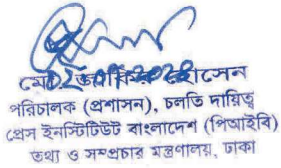 মো হোসেন
পরিচালক (প্রশাসন), চলতি দায়িত্ব
প্রেস ইনস্টিটিউট বাংলাদেশ (পিআইবি)
তথ্য ও সম্প্রচার মন্ত্রণালয়, ঢাকা